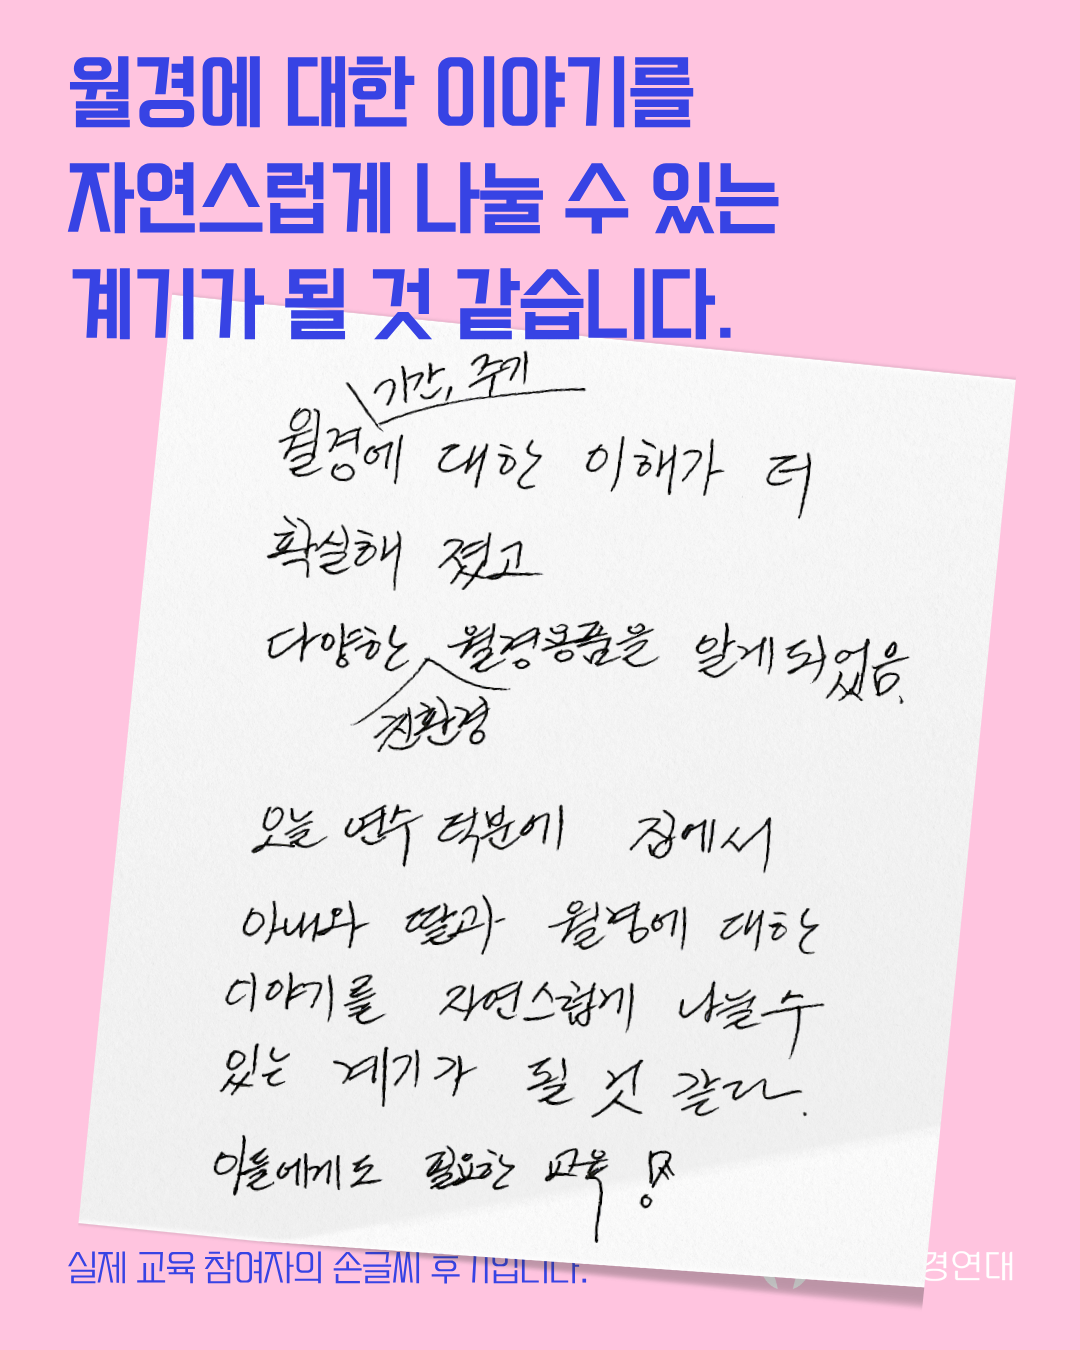 월경에 대한 이야기를
자연스럽게 나눌 수 있는
계기가 될 것 같습니다.
기간, 주기
월경에 대한 이해가 더
확실해 졌고
다양한 월경용품을 알게되었음.
친환경
오늘 연수 덕분에 집에서
아내와 딸과 월경에 대한
이야기를 자연스럽게 나눌수
있는 계기가 될 것 같다.
아들에게도 필요한 교육!
실제 교육 참여자의 손글씨 후기입니다.
경연대